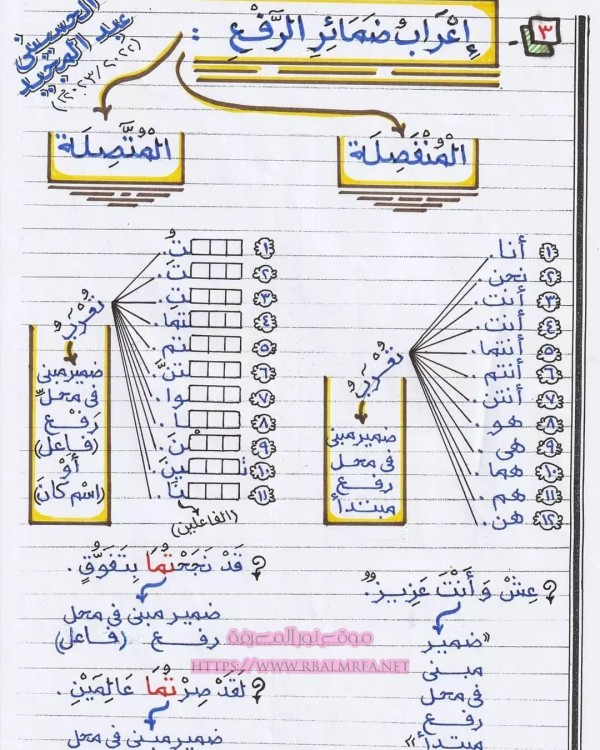 ٣
إعْرَابُ ضَمَائِرِ الرَّفْعِ :
الحسيني
عبد المجيد
(٢٠٢٢/٢٠٢٣)
المُنْفَصِلَة
١ أنا.
٢ نحن.
٣ أنت.
٤ أنت.
٥ أنتما.
٦ أنتم.
٧ أنتن.
٨ هو.
٩ هى.
١٠ هما.
١١ هم.
١٢ هن.
تُعْرَبُ
ضمير مبنى
فى محل
رفع
مبتدأ
المُتَّصِلَة
١ تُ.
٢ تَ.
٣ تِ.
٤ تما.
٥ تم.
٦ تنَّ.
٧ وا.
٨ ا.
٩ نَ.
١٠ ت ين.
١١ نَا.
(الفاعلين)
تُعْرَبُ
ضمير مبنى
فى محلِّ
رَفْع
(فاعل)
أوْ
(اسْم كَانَ)
؟ عِشْ وَ أَنْتَ عَزِيزٌ.
"ضمير
مبنى
فى محل
رفع
مبتدأ"
؟ قَدْ نَجَحْتُمَا بِتَفَوُّقٍ.
ضمير مبنى فى محل
رفع (فاعل)
؟ لَقَدْ صِرْتُمَا عَالِمَيْنِ.
ضمير مبنى فى محل
موقع نور المعرفة
HTTPS://WWW.RBALMRFA.NET